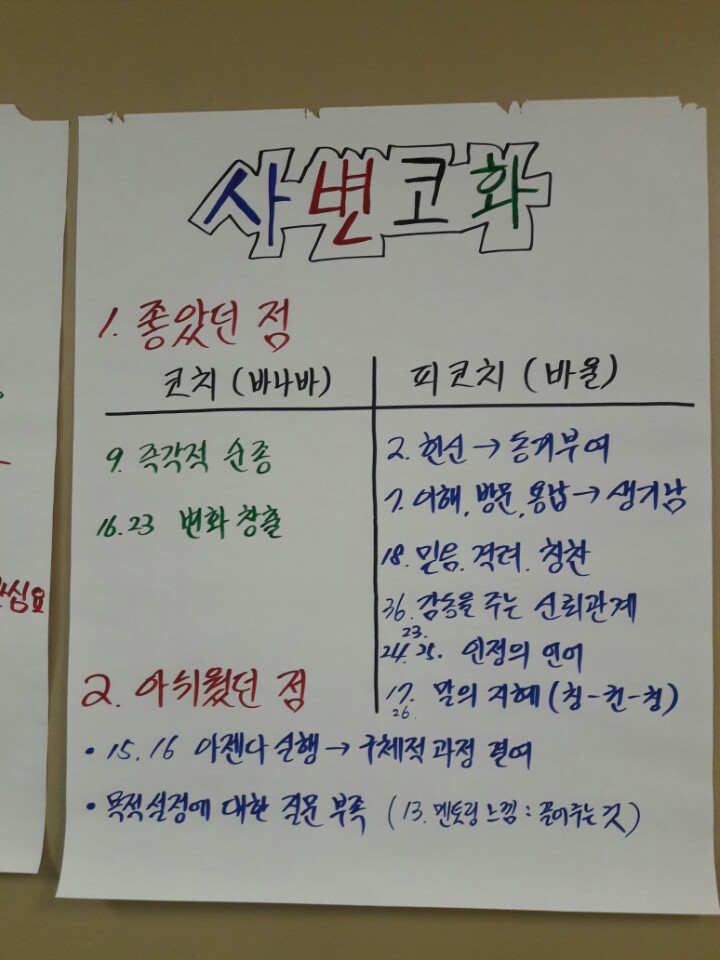 사변코화
1. 좋았던 점
코치 (바나바)
피코치 (바울)
9. 즉각적 순종
16.23 변화 창출
2. 헌신 → 동기부여
7. 이해, 방문, 용납 → 생기남
18. 믿음. 격려. 칭찬
36. 감동을 주는 신뢰관계
23.
24. 25. 인정의 언어
17. 말의 지혜 (칭-권-칭)
26
2. 아쉬웠던 점
• 15, 16 아젠다 실행 → 구체적 과정 결여
• 목적설정에 대한 질문 부족 (13. 멘토링 느낌 : 끌어주는 것)
심요